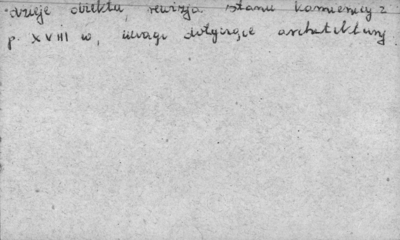 dzieje obiektu, rewizja stanu kamienicy z
p. XVIII w, uwagi dotyczące architektury